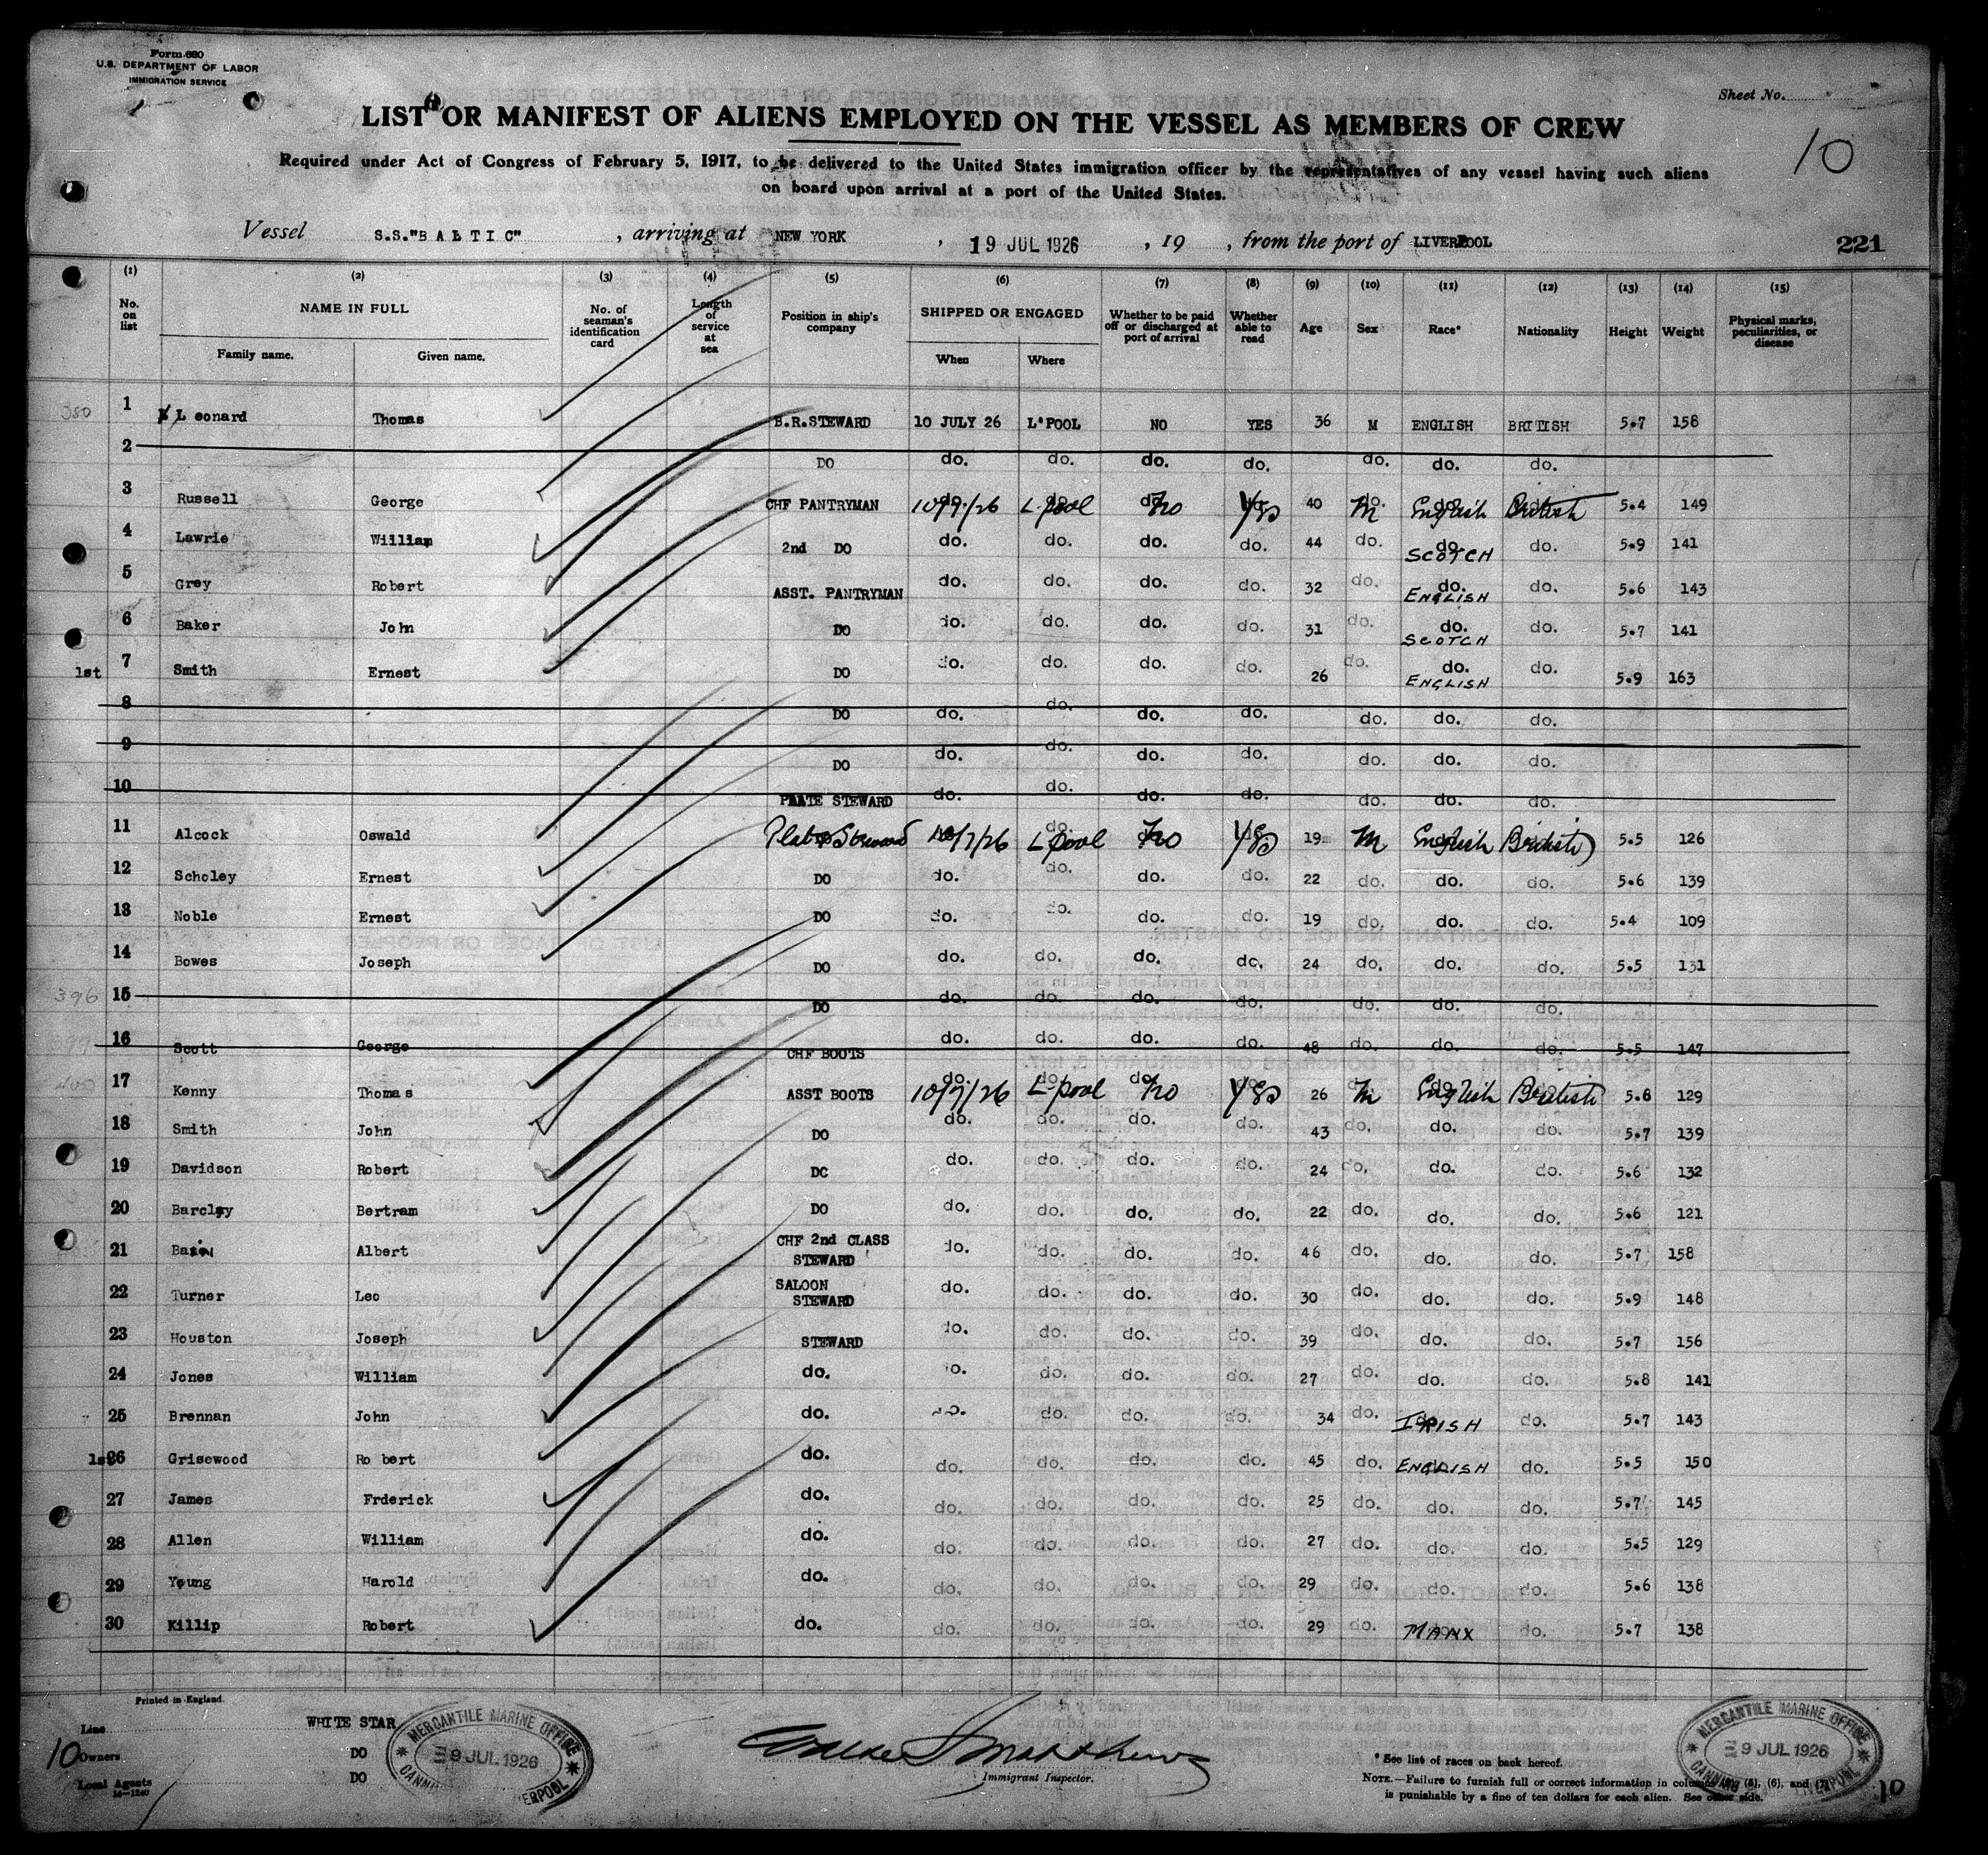 Form 680
U.S. DEPARTMENT OF LABOR
IMMIGRATION SERVICE
Sheet No.
10
LIST OR MANIFEST OF ALIENS EMPLOYED ON THE VESSEL AS MEMBERS OF CREW
Required under Act of Congress of February 5, 1917, to be delivered to the United States immigration officer by the representatives of any vessel having such aliens
on board upon arrival at a port of the United States.
Vessel S.S."BALTIC", arriving at NEW YORK, 19 JUL 1926, 19 , from the port of LIVERPOOL 221
(1) (2) (3) (4) (5) (6) (7) (8) (9) (10) (11) (12) (13) (14) (15)
No. on list NAME IN FULL Family name. Given name. No. of seaman's identification card Length of service at sea Position in ship's company SHIPPED OR ENGAGED When Where Whether to be paid off or discharged at port of arrival Whether able to read Age Sex Race* Nationality Height Weight Physical marks, peculiarities, or disease
380 1 Leonard Thomas B.R.STEWARD 10 JULY 26 L'POOL NO YES 36 M ENGLISH BRITISH 5.7 158
2 DO do. do. do. do. do. do. do.
3 Russell George CHF PANTRYMAN 10/7/26 L-pool No Yes 40 M English British 5.4 149
4 Lawrie William 2nd DO do. do. do. do. 44 do. do. SCOTCH do. 5.9 141
5 Grey Robert ASST. PANTRYMAN do. do. do. do. 32 do. do. ENGLISH do. 5.6 143
6 Baker John DO do. do. do. do. 31 do. do. SCOTCH do. 5.7 141
1st 7 Smith Ernest DO do. do. do. do. 26 do. do. ENGLISH do. 5.9 163
8 DO do. do. do. do. do. do. do.
9 DO do. do. do. do. do. do. do.
10 PLATE STEWARD do. do. do. do. do. do. do.
11 Alcock Oswald Plate Steward 10/7/26 L-pool No Yes 19 M English British 5.5 126
12 Scholey Ernest DO do. do. do. do. 22 do. do. do. 5.6 139
13 Noble Ernest DO do. do. do. do. 19 do. do. do. 5.4 109
14 Bowes Joseph DO do. do. do. do. 24 do. do. do. 5.5 131
396 15 DO do. do. do. do. do. do. do.
16 Scott George CHF BOOTS do. do. do. do. 48 do. do. do. 5.5 147
400 17 Kenny Thomas ASST BOOTS 10/7/26 L-pool No Yes 26 M English British 5.8 129
18 Smith John DO do. do. do. do. 43 do. do. do. 5.7 139
19 Davidson Robert DO do. do. do. do. 24 do. do. do. 5.6 132
20 Barclay Bertram DO do. do. do. do. 22 do. do. do. 5.6 121
21 Albert CHF 2nd CLASS STEWARD do. do. do. do. 46 do. do. do. 5.7 158
22 Turner Leo SALOON STEWARD do. do. do. do. 30 do. do. do. 5.9 148
23 Houston Joseph STEWARD do. do. do. do. 39 do. do. do. 5.7 156
24 Jones William do. do. do. do. do. 27 do. do. do. 5.8 141
25 Brennan John do. do. do. do. do. 34 do. IRISH do. 5.7 143
1st 26 Grisewood Ro bert do. do. do. do. do. 45 do. ENGLISH do. 5.5 150
27 James Frderick do. do. do. do. do. 25 do. do. do. 5.7 145
28 Allen William do. do. do. do. do. 27 do. do. do. 5.5 129
29 Young Harold do. do. do. do. do. 29 do. do. do. 5.6 138
30 Killip Robert do. do. do. do. do. 29 do. MANX do. 5.7 138
Printed in England.
Line WHITE STAR
10 Owners DO
Local Agents DO
M-1240
MERCANTILE MARINE OFFICE
9 JUL 1926
Matthews
Immigrant Inspector.
* See list of races on back hereof.
NOTE.—Failure to furnish full or correct information in columns (5), (6), and (7)
is punishable by a fine of ten dollars for each alien. See other side.
MERCANTILE MARINE OFFICE
9 JUL 1926
10